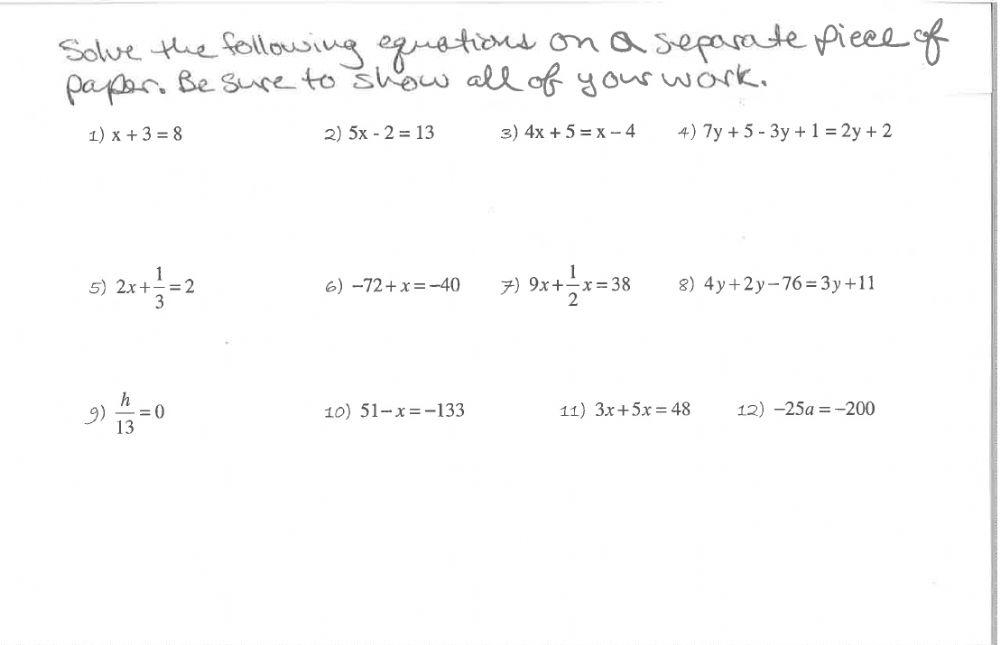 Solve the following equations on a separate piece of
paper. Be sure to show all of your work.
1) x + 3 = 8 2) 5x - 2 = 13 3) 4x + 5 = x – 4 4) 7y + 5 - 3y + 1 = 2y + 2
5) 2x + 1/3 = 2 6) –72 + x = –40 7) 9x + 1/2 x = 38 8) 4y + 2y – 76 = 3y + 11
9) h/13 = 0 10) 51 – x = –133 11) 3x + 5x = 48 12) –25a = –200